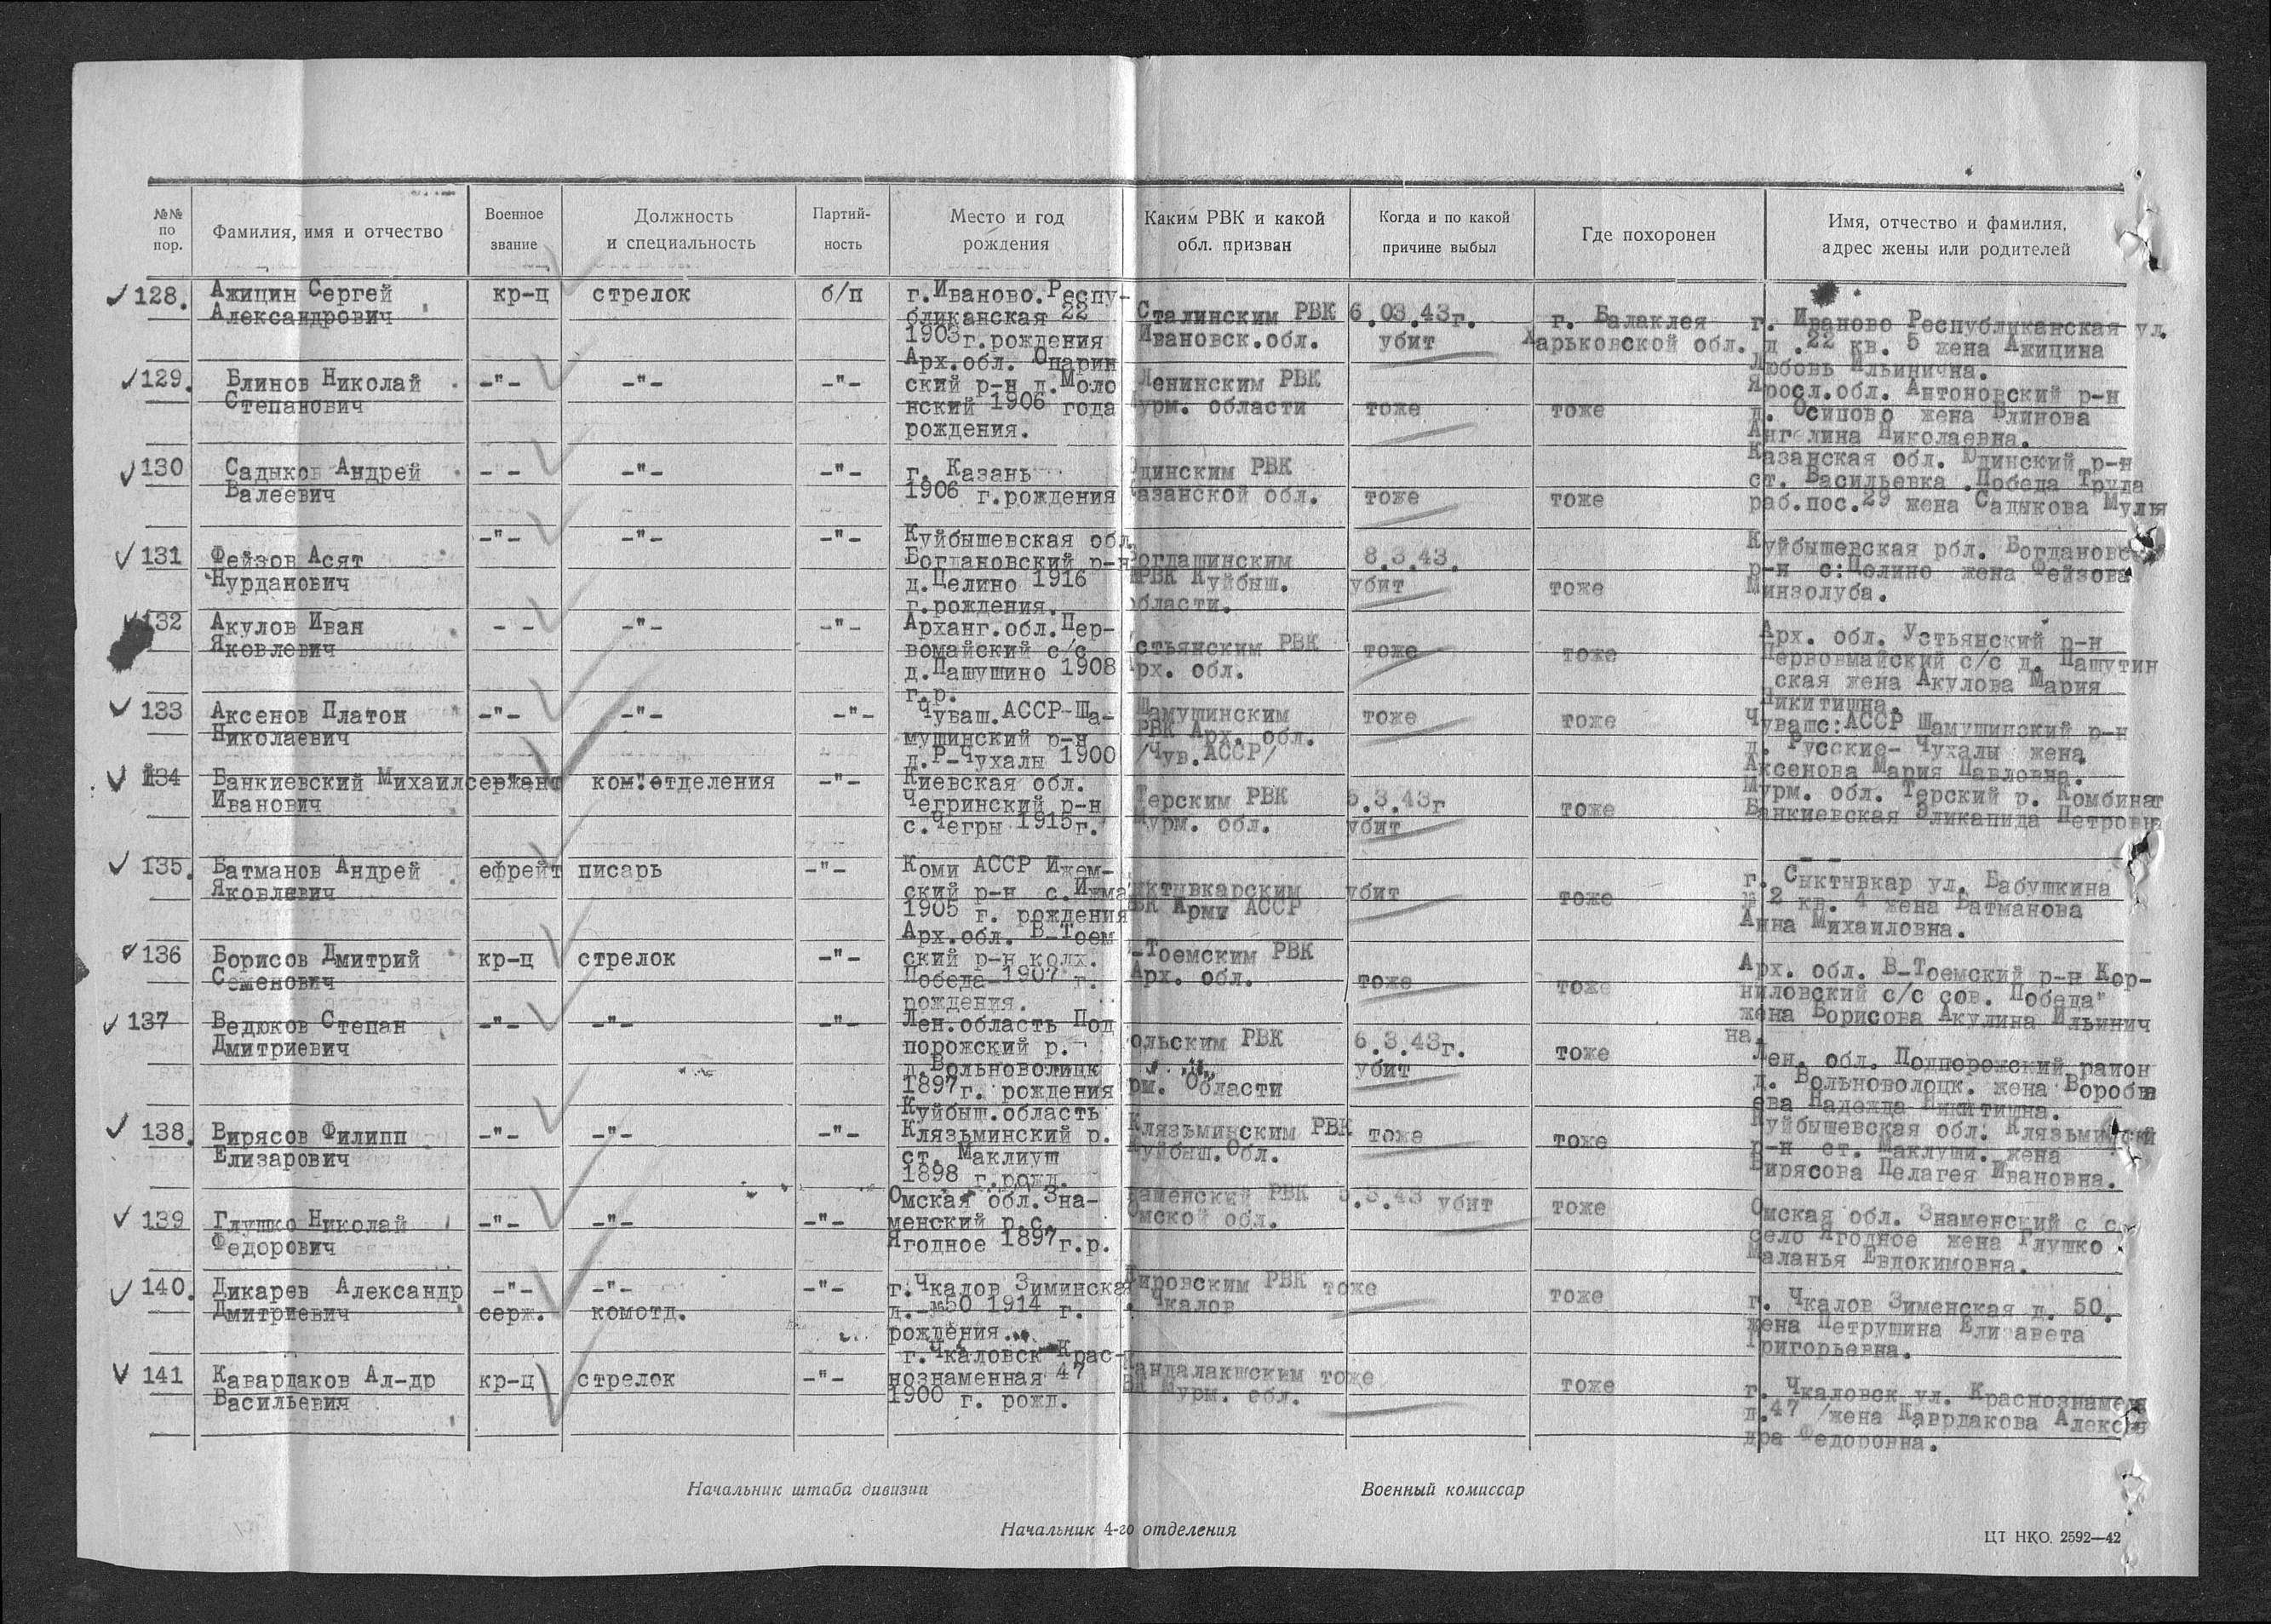 №№ по пор.
Фамилия, имя и отчество
Военное звание
Должность и специальность
Партий-ность
Место и год рождения
Каким РВК и какой обл. призван
Когда и по какой причине выбыл
Где похоронен
Имя, отчество и фамилия, адрес жены или родителей
128.
Ажицин Сергей
Александрович
кр-ц
стрелок
б/п
г.Иваново.Респу-
бликанская 22
1903г.рождения
Сталинским РВК
Ивановск.обл.
6.03.43г.
убит
г. Балаклея
Харьковской обл.
г. Иваново Республиканская ул.
д .22 кв. 5 жена Ажицина
Любовь Ильинична.
129.
Блинов Николай
Степанович
-"-
-"-
-"-
Арх.обл. Опарин
ский р-н д.Моло
нский 1906 года
рождения.
Ленинским РВК
Мурм. области
тоже
тоже
Яросл.обл. Антоновский р-н
д. Осипово жена Блинова
Ангелина Николаевна.
130
Садыков Андрей
Валеевич
- -
-"-
-"-
г. Казань
1906 г.рождения
Юдинским РВК
Казанской обл.
тоже
тоже
Казанская обл. Юдинский р-н
ст. Васильевка .Победа Труда
раб.пос.29 жена Садыкова Мулы
131
Фейзов Асят
Нурданович
-"-
-"-
-"-
Куйбышевская обл.
Богдановский р-н
д.Целино 1916
г.рождения.
Богдашинским
РВК Куйбыш.
области.
8.3.43.
убит
тоже
Куйбышевская рбл. Богдановс
р-н с:Целино жена Фейзова
Минзолуба.
132
Акулов Иван
Яковлевич
- -
-"-
-"-
Арханг.обл.Пер-
вомайский с/с
д.Пашушино 1908
г.р.
Устьянским РВК
Арх. обл.
тоже
тоже
Арх. обл. Устьянский р-н
Первовмайский с/с д. Пашутин
ская жена Акулова Мария
Никитишна.
133
Аксенов Платон
Николаевич
-"-
-"-
-"-
Чуваш.АССР-Ша-
мушинский р-н
д.Р-Чухалы 1900
Шамушинским
РВК Арх. обл.
/Чув.АССР/
тоже
тоже
Чувашс:АССР Шамушинский р-н
д. Русские- Чухалы жена
Аксенова Мария Павловна.
134
Банкиевский Михаил
Иванович
сержант
ком.отделения
-"-
Киевская обл.
Чегринский р-н
с.Чегры 1915г.
Терским РВК
Мурм. обл.
6.3.43г
убит
тоже
Мурм. обл. Терский р. Комбинат
Банкиевская Эликапида Петровна
135.
Батманов Андрей
Яковлевич
ефрейт
писарь
-"-
Коми АССР Ижем-
ский р-н с.Ижма
1905 г. рождения
Сыктывкарским
РВК Арми АССР
убит
тоже
г. Сыктывкар ул. Бабушкина
№2 кв. 4 жена Батманова
Анна Михаиловна.
136
Борисов Дмитрий
Семенович
кр-ц
стрелок
-"-
Арх.обл. В-Тоем
ский р-н колх.
Победа-1907 г.
рождения.
-Тоемским РВК
Арх. обл.
тоже
тоже
Арх. обл. В-Тоемский р-н Кор-
ниловский с/с сов. Победа"
жена Борисова Акулина Ильинич
на.
137
Ведюков Степан
Дмитриевич
-"-
-"-
-"-
Лен.область Под
порожский р.-
д.Вольноволицк
1897г. рождения
ольским РВК
рм. Области
6.3.43г.
убит
тоже
Лен. обл. Подпорожский район
д. Вольноволоцк. жена Воробь
ева Надежда Никитишна.
138.
Вирясов Филипп
Елизарович
-"-
-"-
-"-
Куйбыш.область
Клязьминский р.
ст. Маклиуш
1898 г.рожд.
Клязьминским РВК
Куйбыш.Обл.
тоже
тоже
Куйбышевская обл. Клязьминский
р-н ст. Маклуши. жена
Вирясова Пелагея Ивановна.
139
Глушко Николай
Федорович
-"-
-"-
-"-
Омская обл.Зна-
менский р.с.
Ягодное 1897г.р.
наменский РВК
Омской обл.
6.3.43 убит
тоже
Омская обл. Знаменский с с.
село Ягодное жена Глушко
Маланья Евдокимовна.
140.
Дикарев Александр
Дмитриевич
-"-
серж.
-"-
комотд.
-"-
г.Чкалов Зиминская
д.-№50 1914 г.
рождения.
Кировским РВК
г. Чкалов
тоже
тоже
г. Чкалов Зименская д. 50.
жена Петрушина Елизавета
Григорьевна.
141
Кавардаков Ал-др
Васильевич
кр-ц
стрелок
-"-
г.Чкаловск Крас-
нознаменная 47
1900 г. рожд.
Кандалакшским
РВК Мурм. обл.
тоже
тоже
г. Чкаловск ул. Краснознамен
д.47 /жена Каврдакова Алексан
дра Федоровна.
Начальник штаба дивизии
Военный комиссар
Начальник 4-го отделения
ЦТ НКО. 2592—42